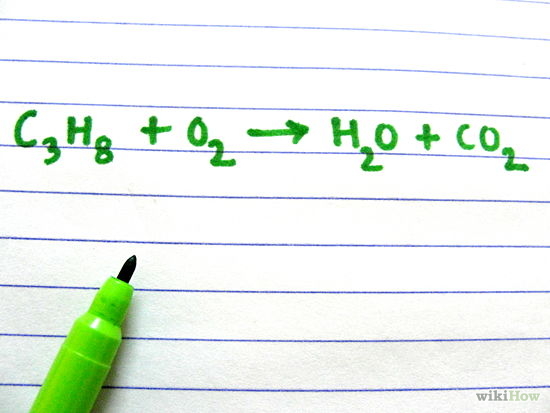 C₃H₈ + O₂ → H₂O + CO₂
wikiHow